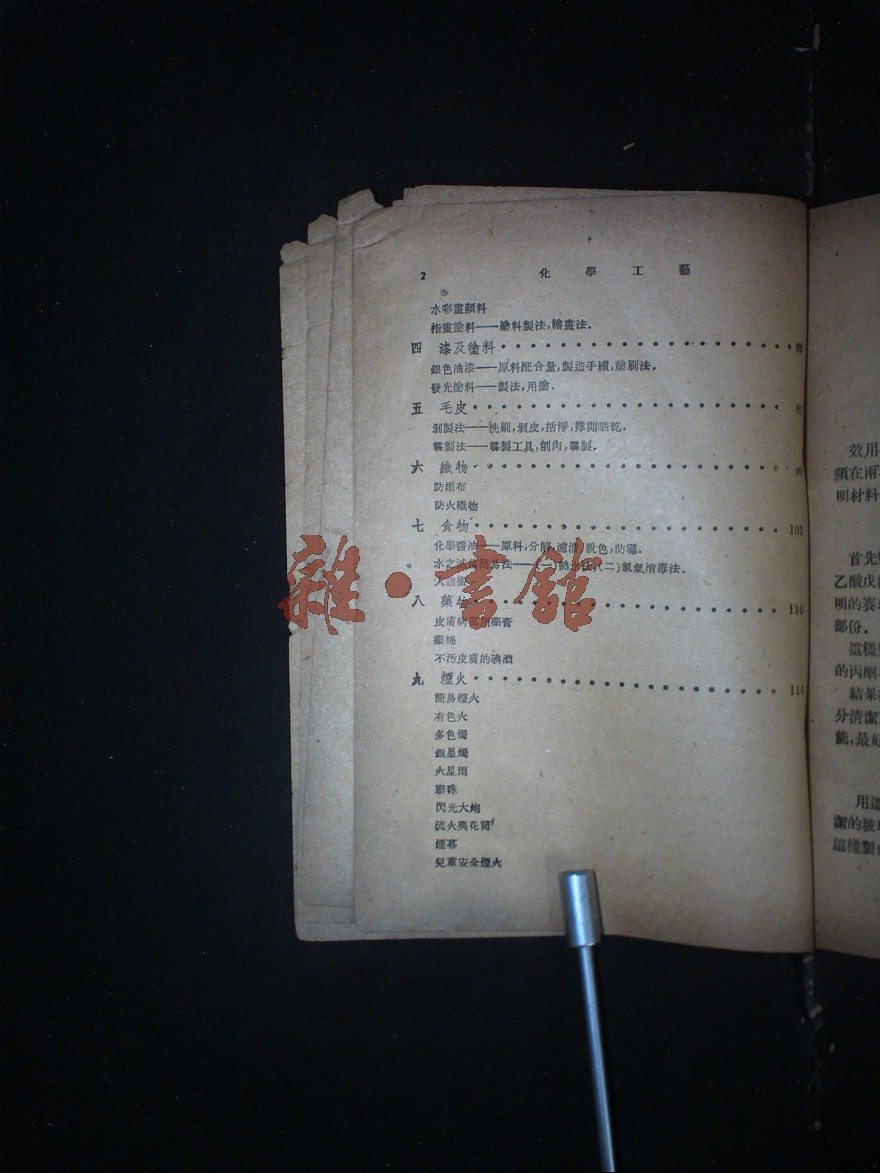 2 化學工藝
水彩畫顔料
指畫塗料——塗料製法,繪畫法.
四 漆及塗料
銀色油漆——原料配合量,製造手續,塗刷法.
發光塗料——製法,用塗.
五 毛皮
剝製法——洗刷,剝皮,括淨,撑開晒乾.
鞣製法——鞣製工具,削肉,鞣製.
六 織物
防雨布
防火織物
七 食物 103
化學醬油——原料,分解,濾清,脫色,防霉.
水之消毒簡易法——(一)熱水法,(二)氯氣消毒法.
人造蜜
八 藥物 110
皮膚病萬用藥膏
藥棉
不汚皮膚的碘酒
九 煙火 114
簡易煙火
有色火
多色燭
銀星燭
火星雨
聯珠
閃光大炮
流火與花筒
煙幕
兒童安全煙火
雜·書館
效用
須在兩
明材料
首先
乙酸戊
明的賽
部份.
這樣
的丙酮
結果
分清潔
能,最好
用這
潔的玻
這樣製